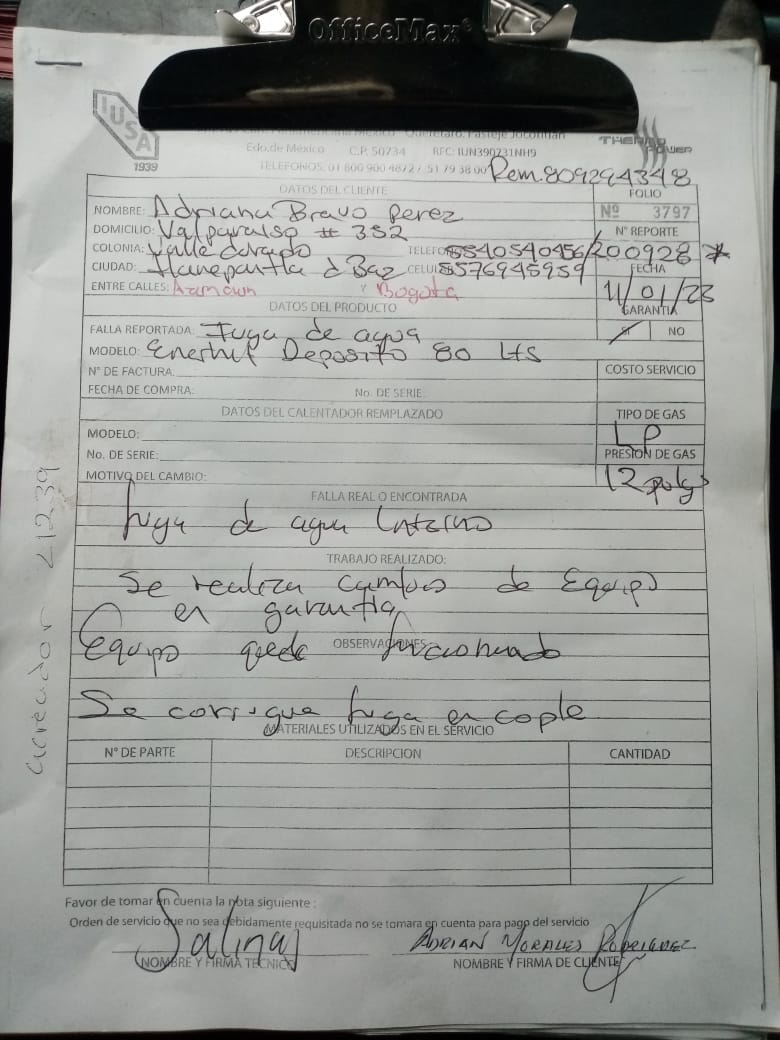 OfficeMax
IUSA
1939
THERMO POWER
Edo.de México C.P. 50734 RFC: IUN390731NH9
TELEFONOS: 01 800 900 4872 / 51 79 38 00
Rem.809294348
DATOS DEL CLIENTE
FOLIO
NOMBRE: Adriana Bravo Perez
Nº 3797
DOMICILIO: Valparaiso # 352
N° REPORTE
COLONIA: Valle dorado TELEFO 5540540456/200928 *
CIUDAD: tlanepantla d Baz CELUL 5576945959
FECHA
11/01/23
ENTRE CALLES: Y Bogota
DATOS DEL PRODUCTO
GARANTIA
FALLA REPORTADA: Fuga de agua
SI NO
MODELO: Deposito 80 Lts
N° DE FACTURA:
COSTO SERVICIO
FECHA DE COMPRA: No. DE SERIE:
DATOS DEL CALENTADOR REMPLAZADO
TIPO DE GAS
MODELO:
LP
No. DE SERIE:
PRESION DE GAS
MOTIVO DEL CAMBIO:
12 polgs
FALLA REAL O ENCONTRADA
fuga de agua Interno
TRABAJO REALIZADO:
Se realiza cambio de Equipo
en garantia
OBSERVACIONES
Equipo queda funcionando
Se corrigue fuga en cople
MATERIALES UTILIZADOS EN EL SERVICIO
N° DE PARTE DESCRIPCION CANTIDAD
Favor de tomar en cuenta la nota siguiente :
Orden de servicio que no sea debidamente requisitada no se tomara en cuenta para pago del servicio
Salinas
ADRIAN MORALES RODRIGUEZ
NOMBRE Y FIRMA TECNICO
NOMBRE Y FIRMA DE CLIENTE
acreedor 21239